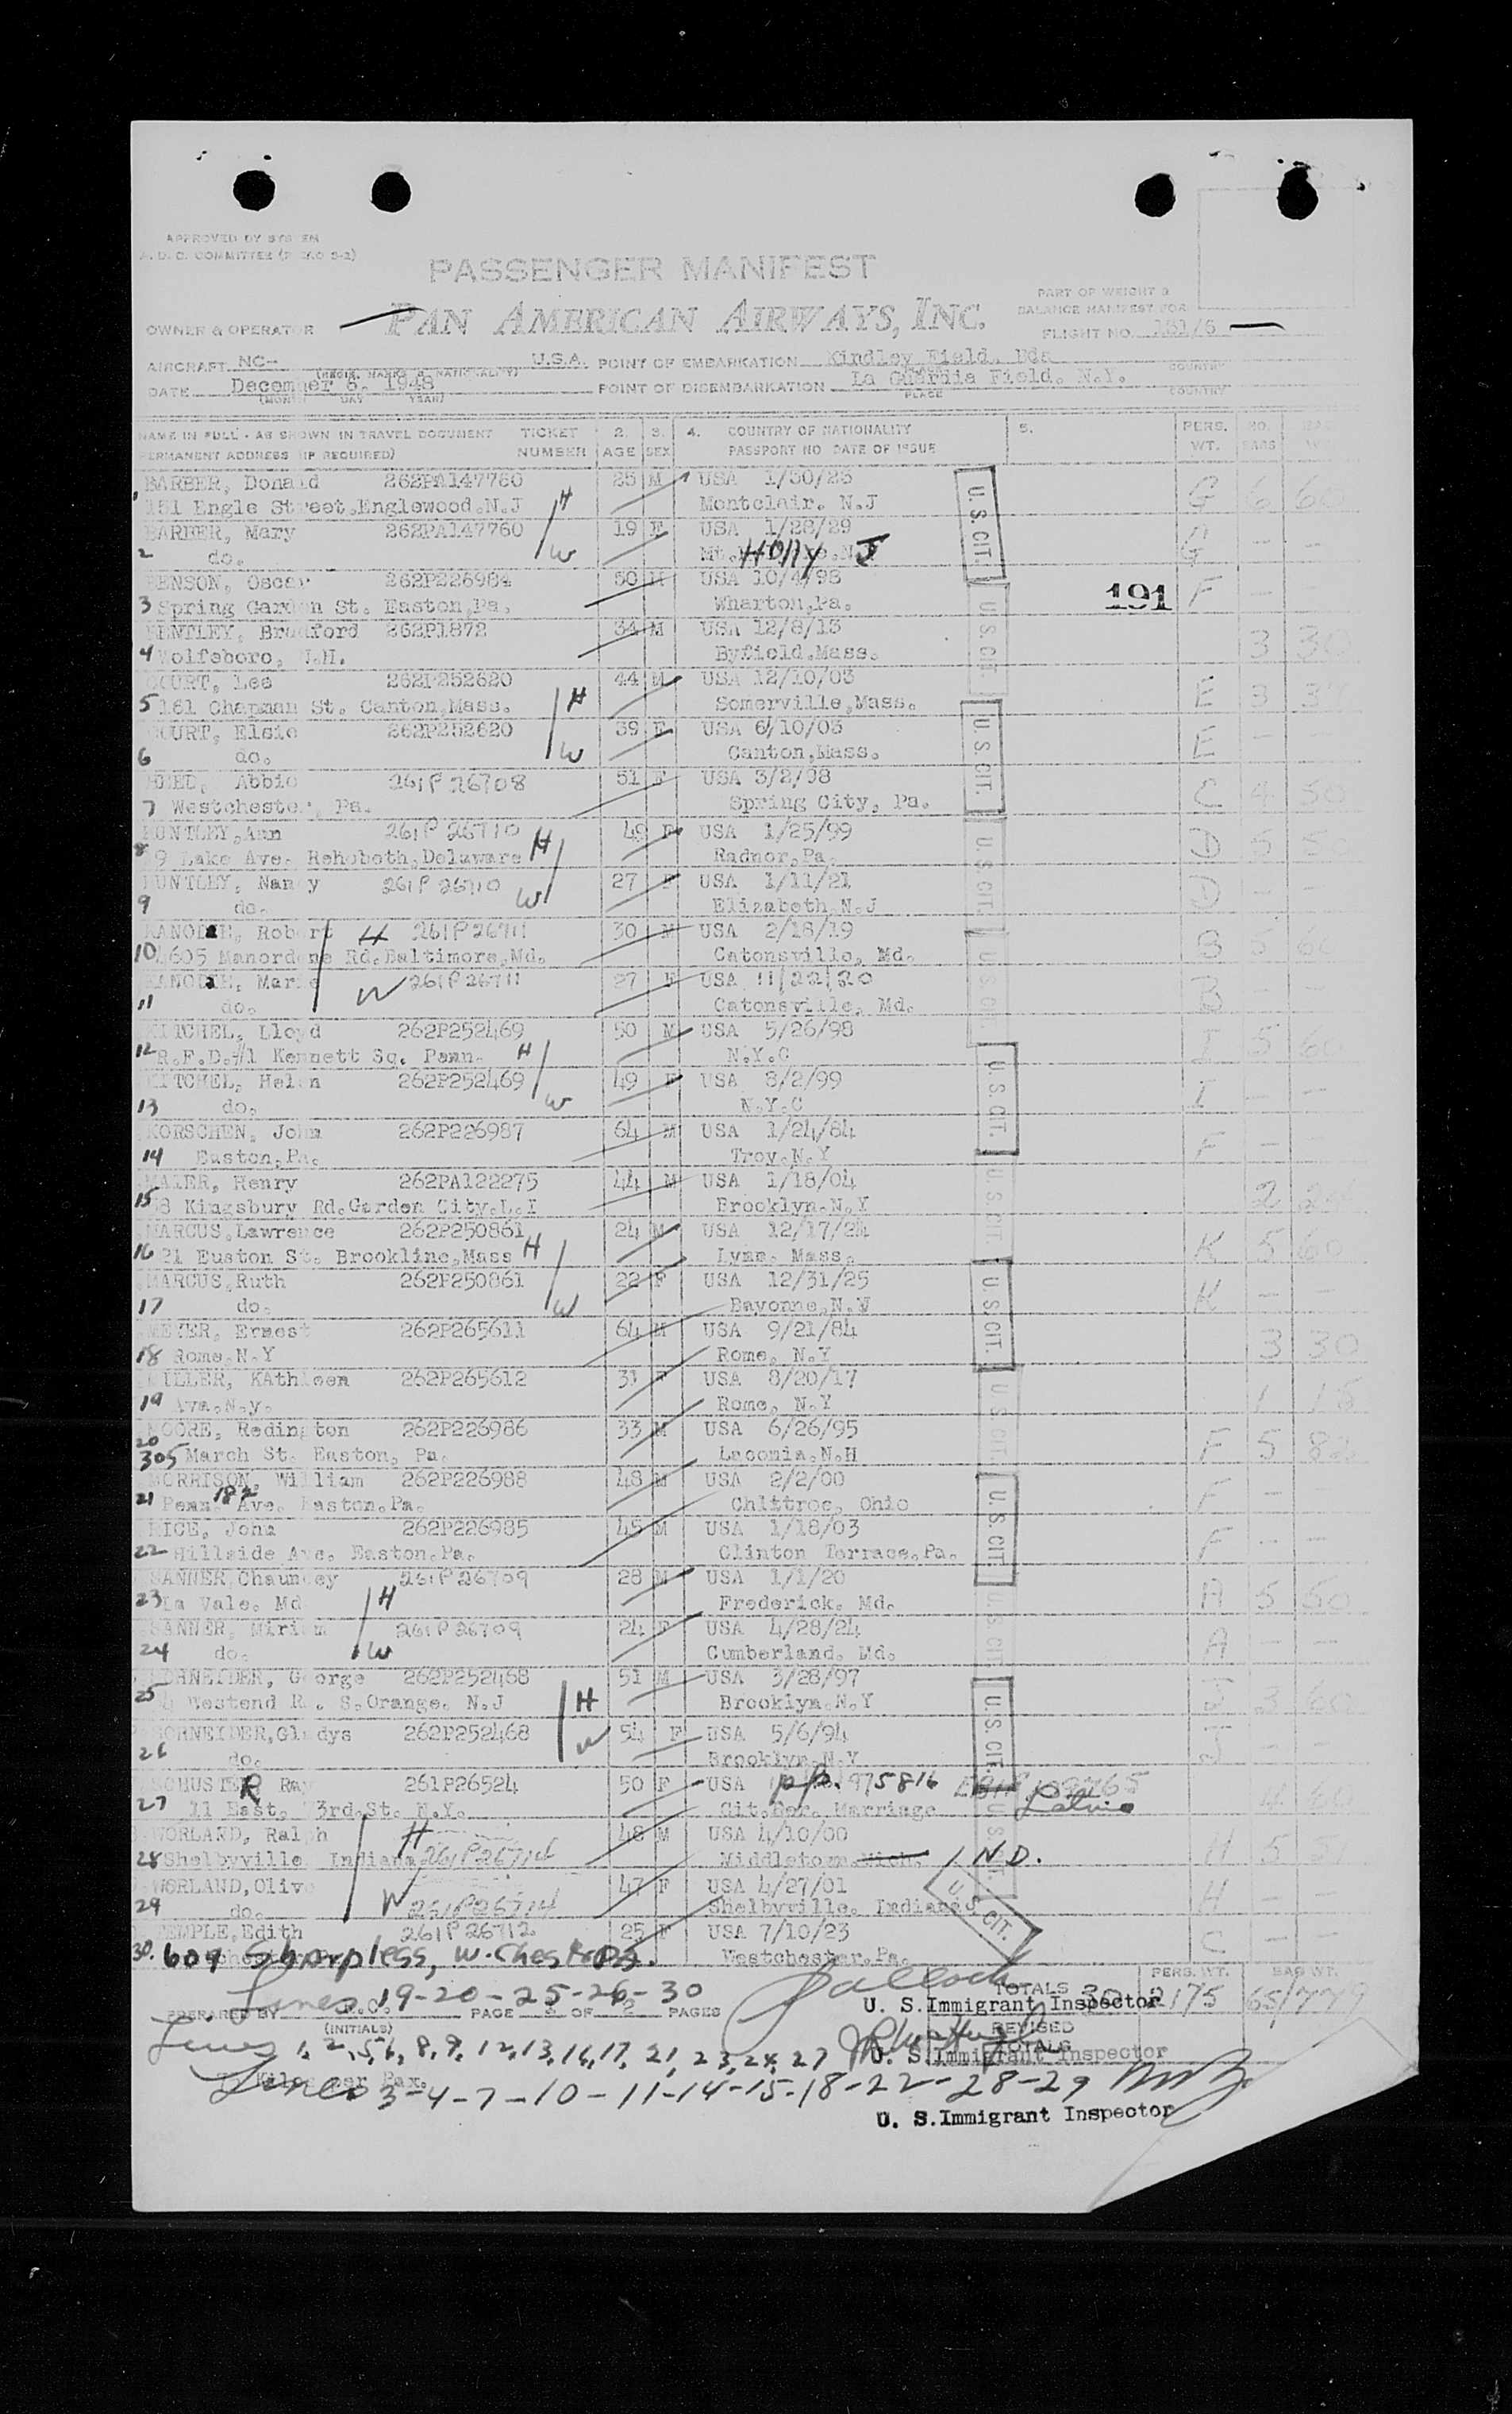 APPROVED BY SYSTEM
PASSENGER MANIFEST
PAN AMERICAN AIRWAYS, INC.
PART OF WEIGHT &
BALANCE MANIFEST FOR
OWNER & OPERATOR
FLIGHT NO. 131/6
AIRCRAFT NC- U.S.A. POINT OF EMBARKATION Kindley Field, Bda COUNTRY
DATE December 6, 1948 POINT OF DISEMBARKATION La Guardia Field, N.Y. COUNTRY
(MONTH DAY YEAR) PLACE
NAME IN FULL - AS SHOWN IN TRAVEL DOCUMENT TICKET 2. 3. 4. COUNTRY OF NATIONALITY 5. PERS. NO. BAG
PERMANENT ADDRESS (IF REQUIRED) NUMBER AGE SEX PASSPORT NO DATE OF ISSUE WT. BAGS WT.
BARBER, Donald 262PA147760 25 M USA 1/30/23 G 6 60
1 151 Engle Street, Englewood, N.J H Montclair, N.J U.S. CIT.
BARBER, Mary 262PA147760 19 F USA 1/28/29 G - -
2 do. W Mt. Holly N J
BENSON, Oscar 262P226984 50 M USA 10/4/98 191 F - -
3 Spring Garden St. Easton, Pa. Wharton, Pa. U.S. CIT.
BENTLEY, Bradford 262P1872 34 M USA 12/8/13 3 30
4 Wolfeboro, N.H. Byfield, Mass.
COURT, Lee 262P252620 44 M USA 12/10/03 E 3
5 161 Chapman St. Canton, Mass. H Somerville, Mass. U.S. CIT.
COURT, Elsie 262P252620 39 F USA 6/10/03 E - -
6 do. W Canton, Mass.
Abbie 261P26708 51 F USA 3/2/98 C 4 50
7 Westchester, Pa. Spring City, Pa.
HUNTLEY, Ann 261P26710 49 F USA 1/25/99 D 5 50
8 9 Lake Ave. Rehoboth, Delaware H Radnor, Pa. U.S. CIT.
HUNTLEY, Nancy 261P26710 27 F USA 1/11/21 D - -
9 do. W Elizabeth, N.J
Robert H 261P26711 30 M USA 2/18/19 B 5 60
10 4605 Manordene Rd. Baltimore, Md. Catonsville, Md. U.S. CIT.
Marie W 261P26711 27 F USA 11/22/20 B - -
11 do. Catonsville, Md.
KITCHEL, Lloyd 262P252469 50 M USA 5/26/98 I 5 60
12 R.F.D.#1 Kennett Sq. Penn. H N.Y.C U.S. CIT.
KITCHEL, Helen 262P252469 49 F USA 8/2/99 I - -
13 do. W N.Y.C
KORSCHEN, John 262P226987 64 M USA 1/24/84 F - -
14 Easton, Pa. Troy, N.Y
MAIER, Henry 262PA122275 44 M USA 1/18/04 2
15 58 Kingsbury Rd. Garden City, L.I Brooklyn, N.Y U.S. CIT.
MARCUS, Lawrence 262P250861 24 M USA 12/17/24 K 5 60
16 21 Euston St. Brookline, Mass H Lynn, Mass.
MARCUS, Ruth 262P250861 22 F USA 12/31/25 K - -
17 do. W Bayonne, N.J U.S. CIT.
MEYER, Ernest 262P265611 64 M USA 9/21/84 3 30
18 Rome, N.Y Rome, N.Y
MILLER, KAthleen 262P265612 31 F USA 8/20/17 1 15
19 Ava, N.y. Rome, N.Y U.S. CIT.
MOORE, Redington 262P226986 33 M USA 6/26/95 F 5 82
20 305 March St. Easton, Pa. Laconia, N.H
MORRISON, William 262P226988 48 M USA 2/2/00 F - -
21 Penn. 182 Ave. Easton, Pa. Chlttroe, Ohio U.S. CIT.
RICE, John 262P226985 45 M USA 1/18/03 F - -
22 Hillside Ave. Easton, Pa. Clinton Terrace, Pa.
SANNER, Chauncey 261P26709 28 M USA 1/1/20 A 5 50
23 La Vale, Md H Frederick, Md. U.S. CIT.
SANNER, Miriam 261P26709 24 F USA 4/28/24 A - -
24 do. W Cumberland, Md.
SCHNEIDER, George 262P252468 51 M USA 3/28/97 J 3 60
25 Westend R. S.Orange, N.J H Brooklyn, N.Y U.S. CIT.
SCHNEIDER, Gladys 262P252468 W 54 F USA 5/6/94 J - -
26 do. Brooklyn, N.Y
SCHUSTER, Ray 261P26524 50 F USA pp. 975816 4 60
27 11 East, 3rd.St. N.Y. Cit. Der. Marriage U.S.
WORLAND, Ralph H 48 M USA 4/10/00 H 5
28 Shelbyville, Indiana 261P26714 Middletown, Mich. IND.
WORLAND, Olive W 47 F USA 4/27/01 H - -
29 do. 261P26714 Shelbyville, Indiana U.S. CIT.
TEMPLE, Edith 261P26712 25 F USA 7/10/23 C - -
30. 609 Sharpless, W. Chester Pa. Westchester, Pa.
Lines 19-20-25-26-30
TOTALS 30 2175 65/779
PERS. WT. BAG WT.
U. S. Immigrant Inspector
PREPARED BY PAGE OF 2 PAGES
(INITIALS)
REVISED TOTALS
Lines 1, 2, 5, 6, 8, 9, 12, 13, 16, 17, 21, 23, 24, 27
U. S. Immigrant Inspector
Lines 3-4-7-10-11-14-15-18-22-28-29
U. S. Immigrant Inspector